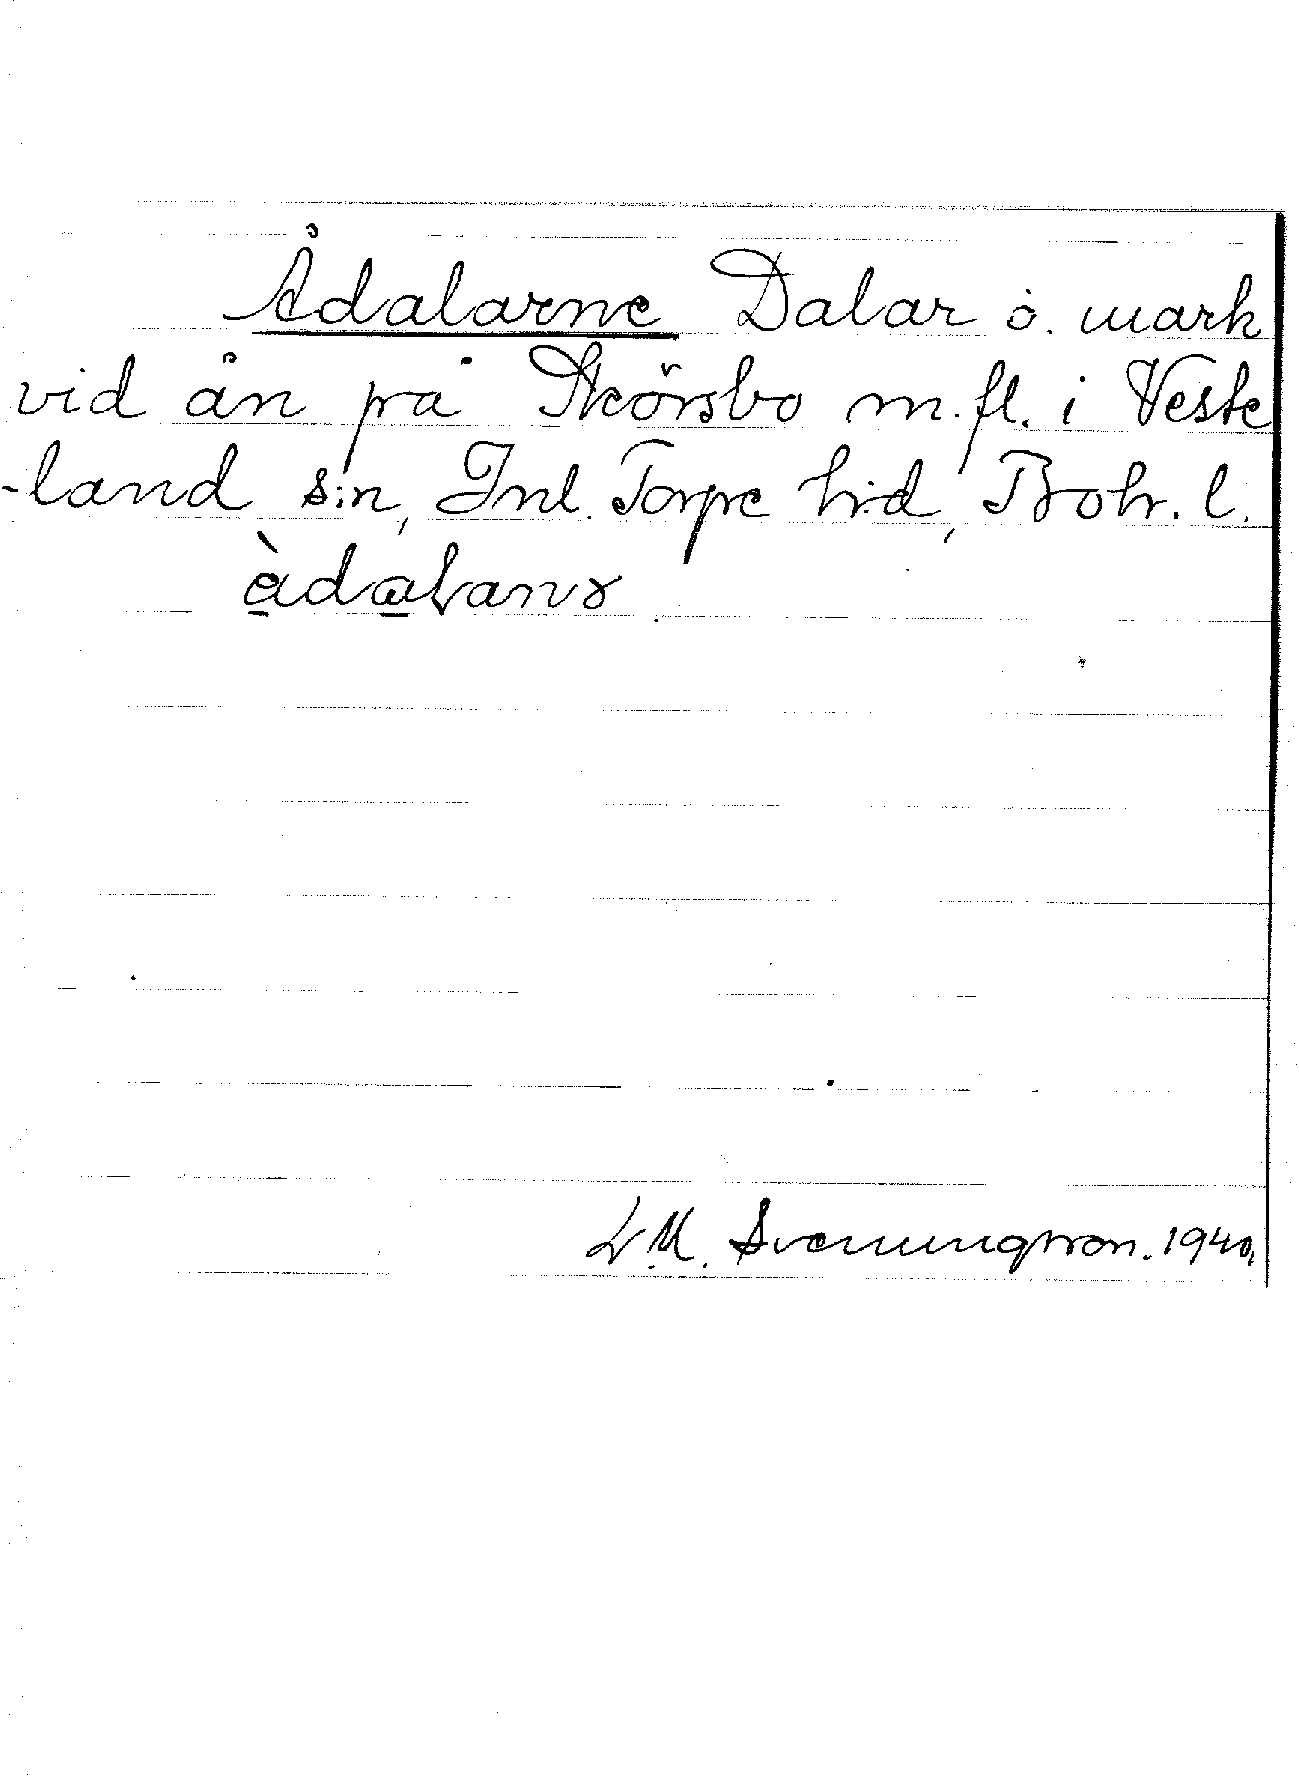 Ådalarne Dalar o. mark
vid ån på Skörsbo m.fl. i Veste
-land s:n, Inl. Torpe h:d, Boh. l.
L.M. Svenungsson. 1940.